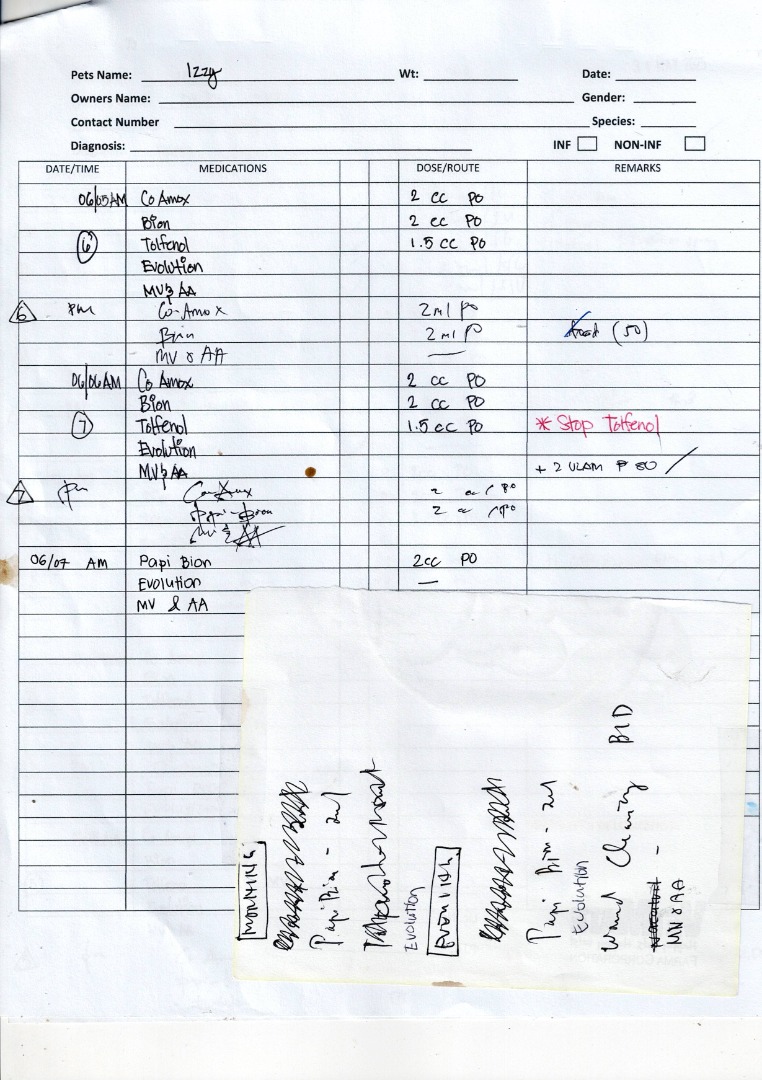 Pets Name: Izzy Wt: Date:
Owners Name: Gender:
Contact Number Species:
Diagnosis: INF NON-INF
DATE/TIME MEDICATIONS DOSE/ROUTE REMARKS
06/05 AM Co Amox 2 cc PO
Bion 2 cc PO
6 Tolfenol 1.5 cc PO
Evolution
MV & AA
6 PM Co-Amox 2 ml PO
Bion 2 ml P (50)
MV & AA —
06/06 AM Co Amox 2 cc PO
Bion 2 cc PO
7 Tolfenol 1.5 cc PO * Stop Tolfenol
Evolution
MV & AA + 2 ULAM P 80
7 PM Co-Amox 2 cc / PO
Papi-Bion 2 cc / PO
MV & AA
06/07 AM Papi Bion 2cc PO
Evolution —
MV & AA
MORNING
Papi Bion - 2ml
Evolution
Papi Bion - 2ml
Evolution
Wound Cleaning BID
MV & AA